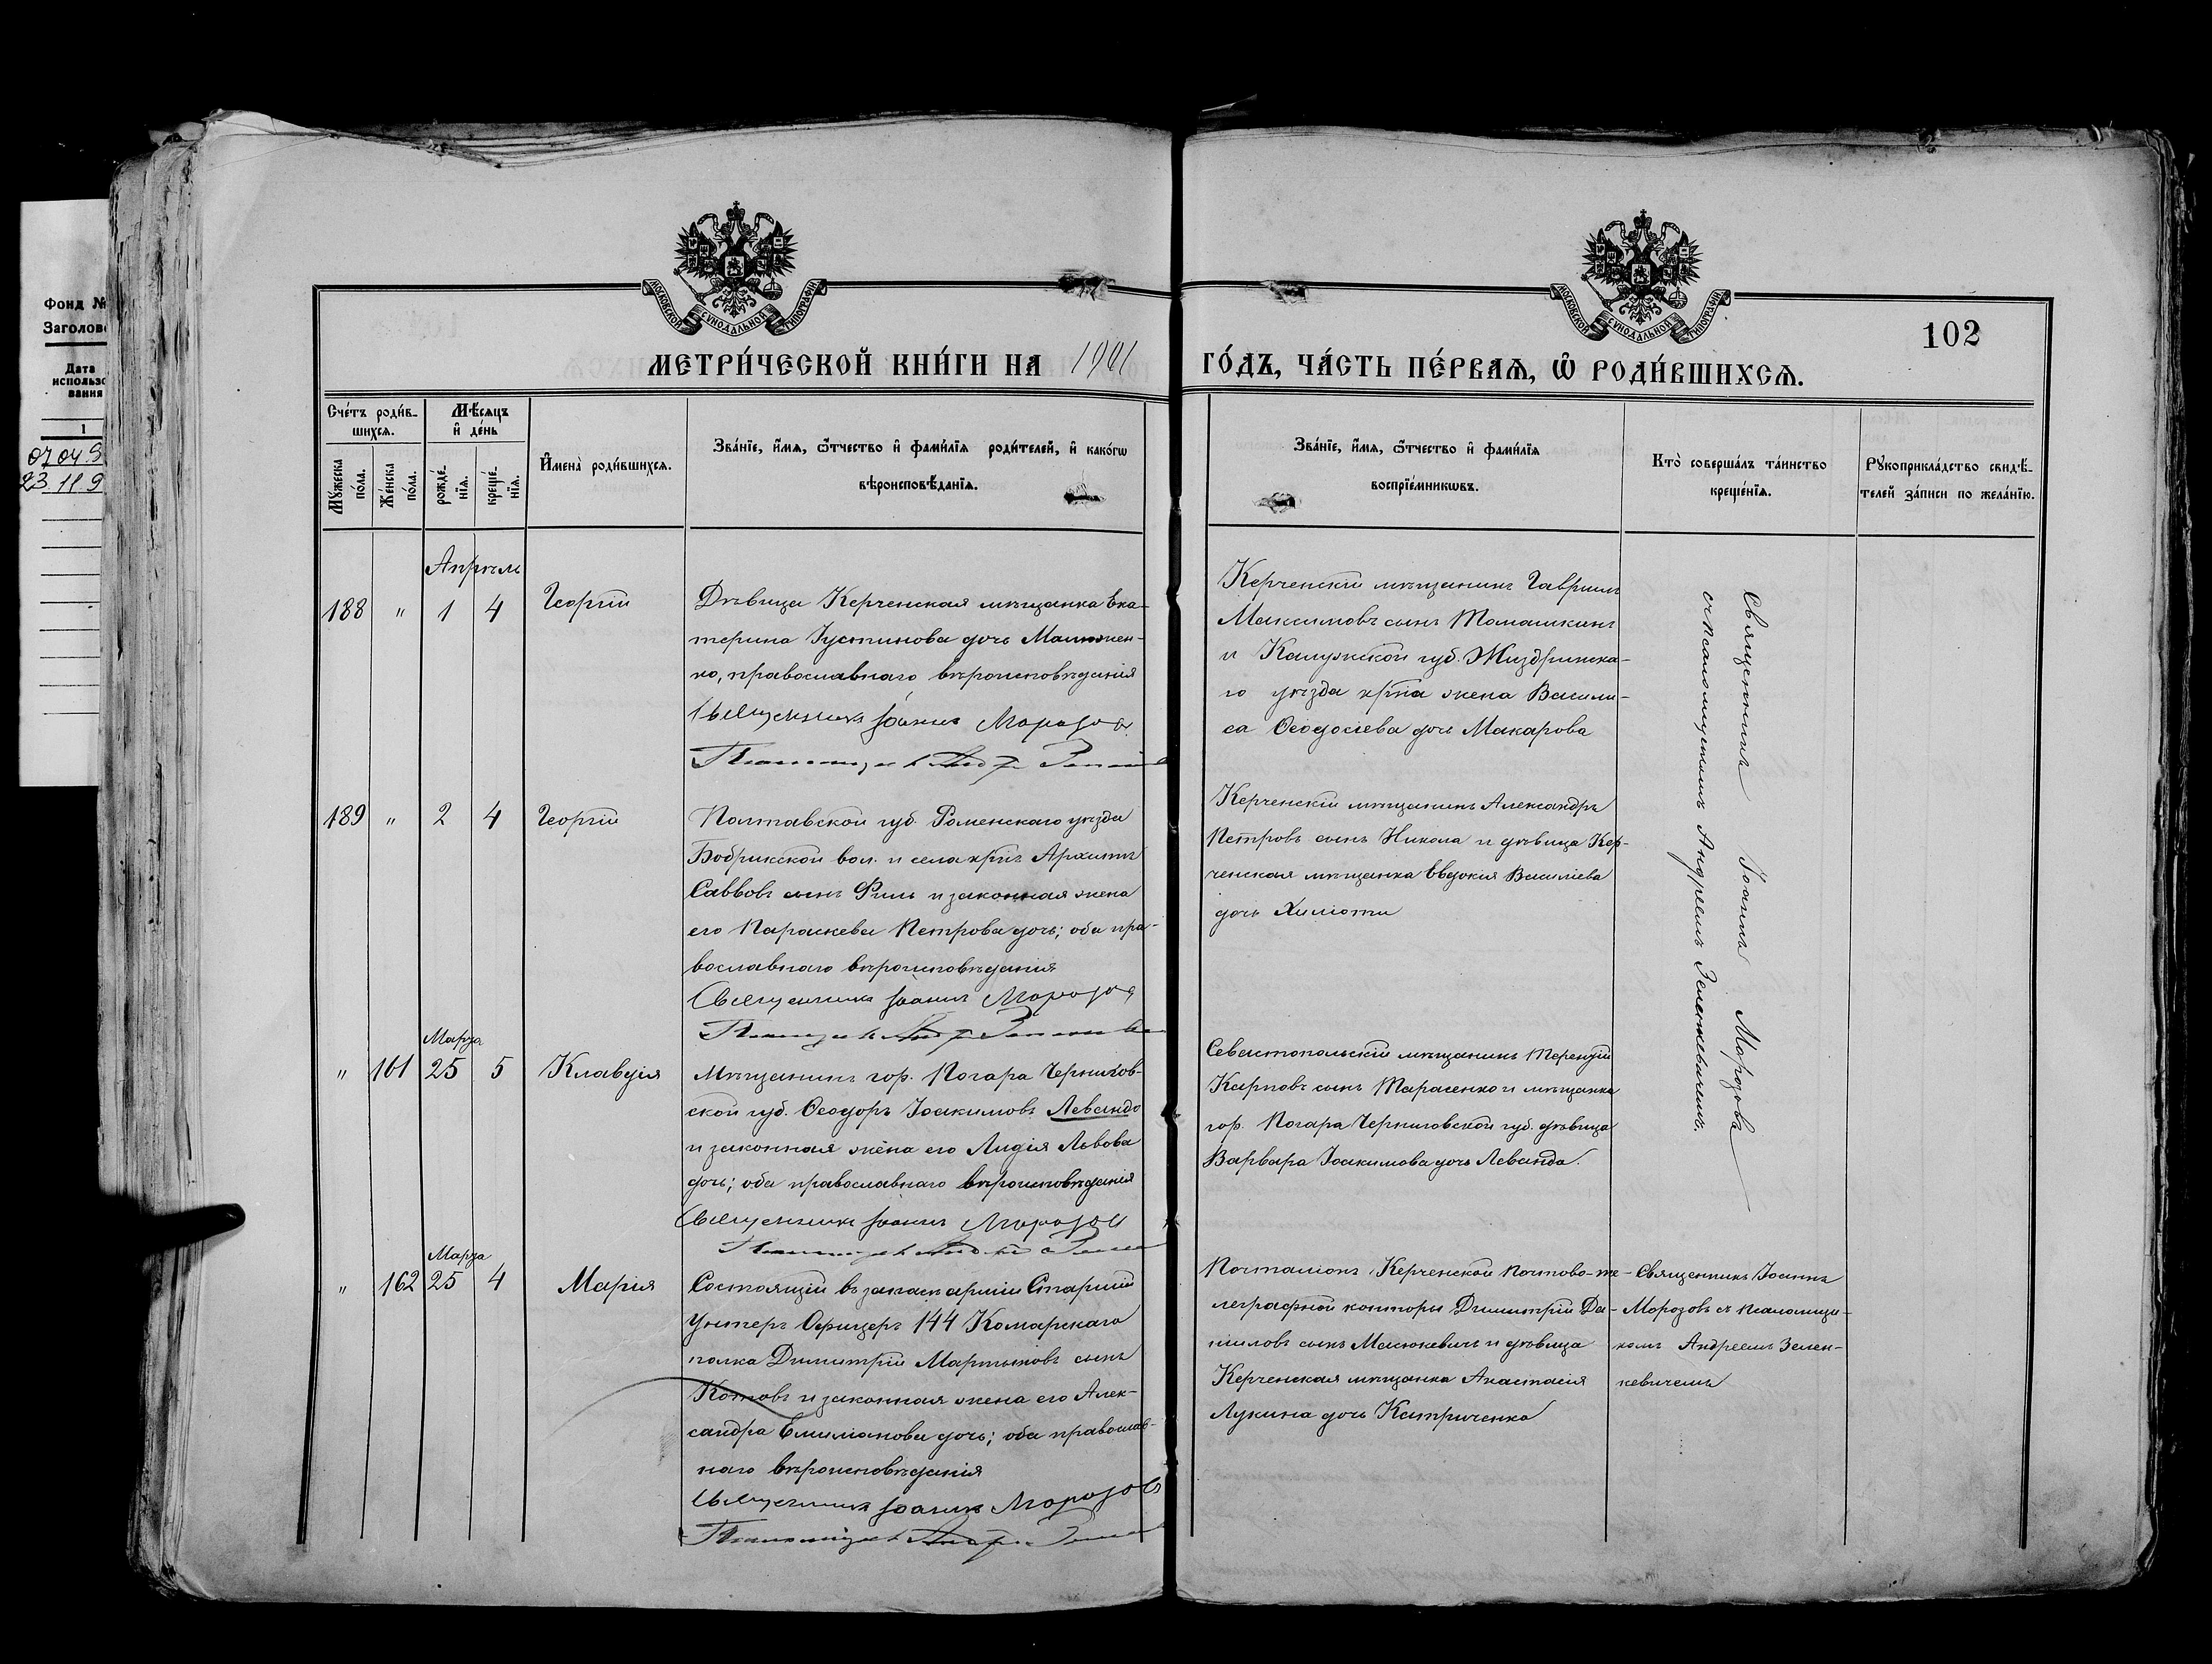 Фонд №
Заголов
Дата
использо
вания
1
07 04 9
23 11 9
МОСКОВСКОЙ СѴНОДАЛЬНОЙ ТИПОГРАФІИ
МОСКОВСКОЙ СѴНОДАЛЬНОЙ ТИПОГРАФІИ
102
МЕТРИ́ЧЕСКОЙ КНИ́ГИ НА 1901
ГО́ДЪ, ЧА́СТЬ ПЕ́РВАѦ, Ѡ҆ РОДИ́ВШИХСѦ.
Сче́тъ роди́в-
шихсѧ.
Мꙋ́жеска
по́ла.
Же́нска
по́ла.
Мѣ́сѧцъ
и҆ де́нь
рожде́-
нїѧ.
креще́-
нїѧ.
И҆мена̀ роди́вшихсѧ.
Зва́нїе, и҆́мѧ, ѻ҆́тчество и҆ фами́лїѧ роди́телей, и҆ како́гѡ
вѣроисповѣ́данїѧ.
Зва́нїе, и҆́мѧ, ѻ҆́тчество и҆ фами́лїѧ
воспрїе́мникѡвъ.
Кто̀ соверша́лъ та́инство
креще́нїѧ.
Рꙋкоприкла́дство свидѣ́-
телей за́писи по жела́нїю.
Апрѣль
188 " 1 4 Георгій
Дѣвица Керченская мѣщанка Ека-
терина Іустинова дочь
но, православнаго вѣроисповѣданія
Священникъ Іоаннъ Морозов
Псаломщик Андр.
Керченскій мѣщанинъ Гавріилъ
Максимовъ сынъ Томашкинъ
и Калужской губ. Жиздринска-
го уѣзда кр-на жена Васили-
са Ѳеодосіева дочь Макарова
189 " 2 4 Георгій
Полтавской губ. Роменскаго уѣзда
Бобрикской вол. и села кр-нъ Архипъ
Саввовъ сынъ Филь и законная жена
его Параскева Петрова дочь; оба пра-
вославнаго вѣроисповѣданія
Священникъ Іоаннъ Морозов
Псаломщик Андр.
Керченскій мѣщанинъ Александръ
Петровъ сынъ Никола и дѣвица Кер-
ченская мѣщанка Евдокія Василіева
дочь
Марта
" 161 25 5 Клавдія
Мѣщанинъ гор. Погара Чернигов-
ской губ. Ѳеодоръ Іоакимовъ Левандо
и законная жена его Лидія Львова
дочь; оба православнаго вѣроисповѣданія
Священникъ Іоаннъ Морозов
Псаломщик Андрей
Севастопольскій мѣщанинъ Терентій
Карповъ сынъ Тарасенко и мѣщанка
гор. Погара Черниговской губ. дѣвица
Варвара Іоакимова дочь Леванда.
Священникъ Іоаннъ Морозовъ
съ псаломщикомъ Андреемъ Зеленкевичемъ.
Марта
" 162 25 4 Марія
Состоящій въ запасѣ арміи Старшій
Унтеръ Офицеръ 144 Комарскаго
полка Димитрій Мартыновъ сынъ
Котовъ и законная жена его Алек-
сандра Емиліанова дочь; оба православ-
наго вѣроисповѣданія
Священникъ Іоаннъ Морозовъ
Псаломщик Андр.
Почталіонъ Керченской Почтово-те-
леграфной конторы Димитрій Да-
ніиловъ сынъ Масюкевичъ и дѣвица
Керченская мѣщанка Анастасія
Лукина дочь Катриченко
Священникъ Іоаннъ
Морозовъ съ псаломщи-
комъ Андреемъ Зелен-
кевичемъ